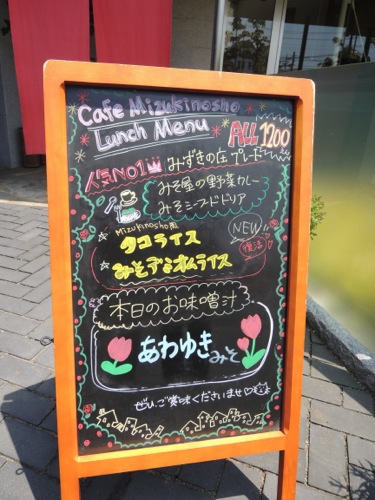 Cafe Mizukinosho
Lunch Menu
ALL 1200
人気NO1 みずきの庄プレート
みそ屋の野菜カレー
みそシーフードドリア
Mizukinosho風
タコライス
NEW 復活
みそデミオムライス
本日のお味噌汁
あわゆきみそ
ぜひ、ご賞味くださいませ♡